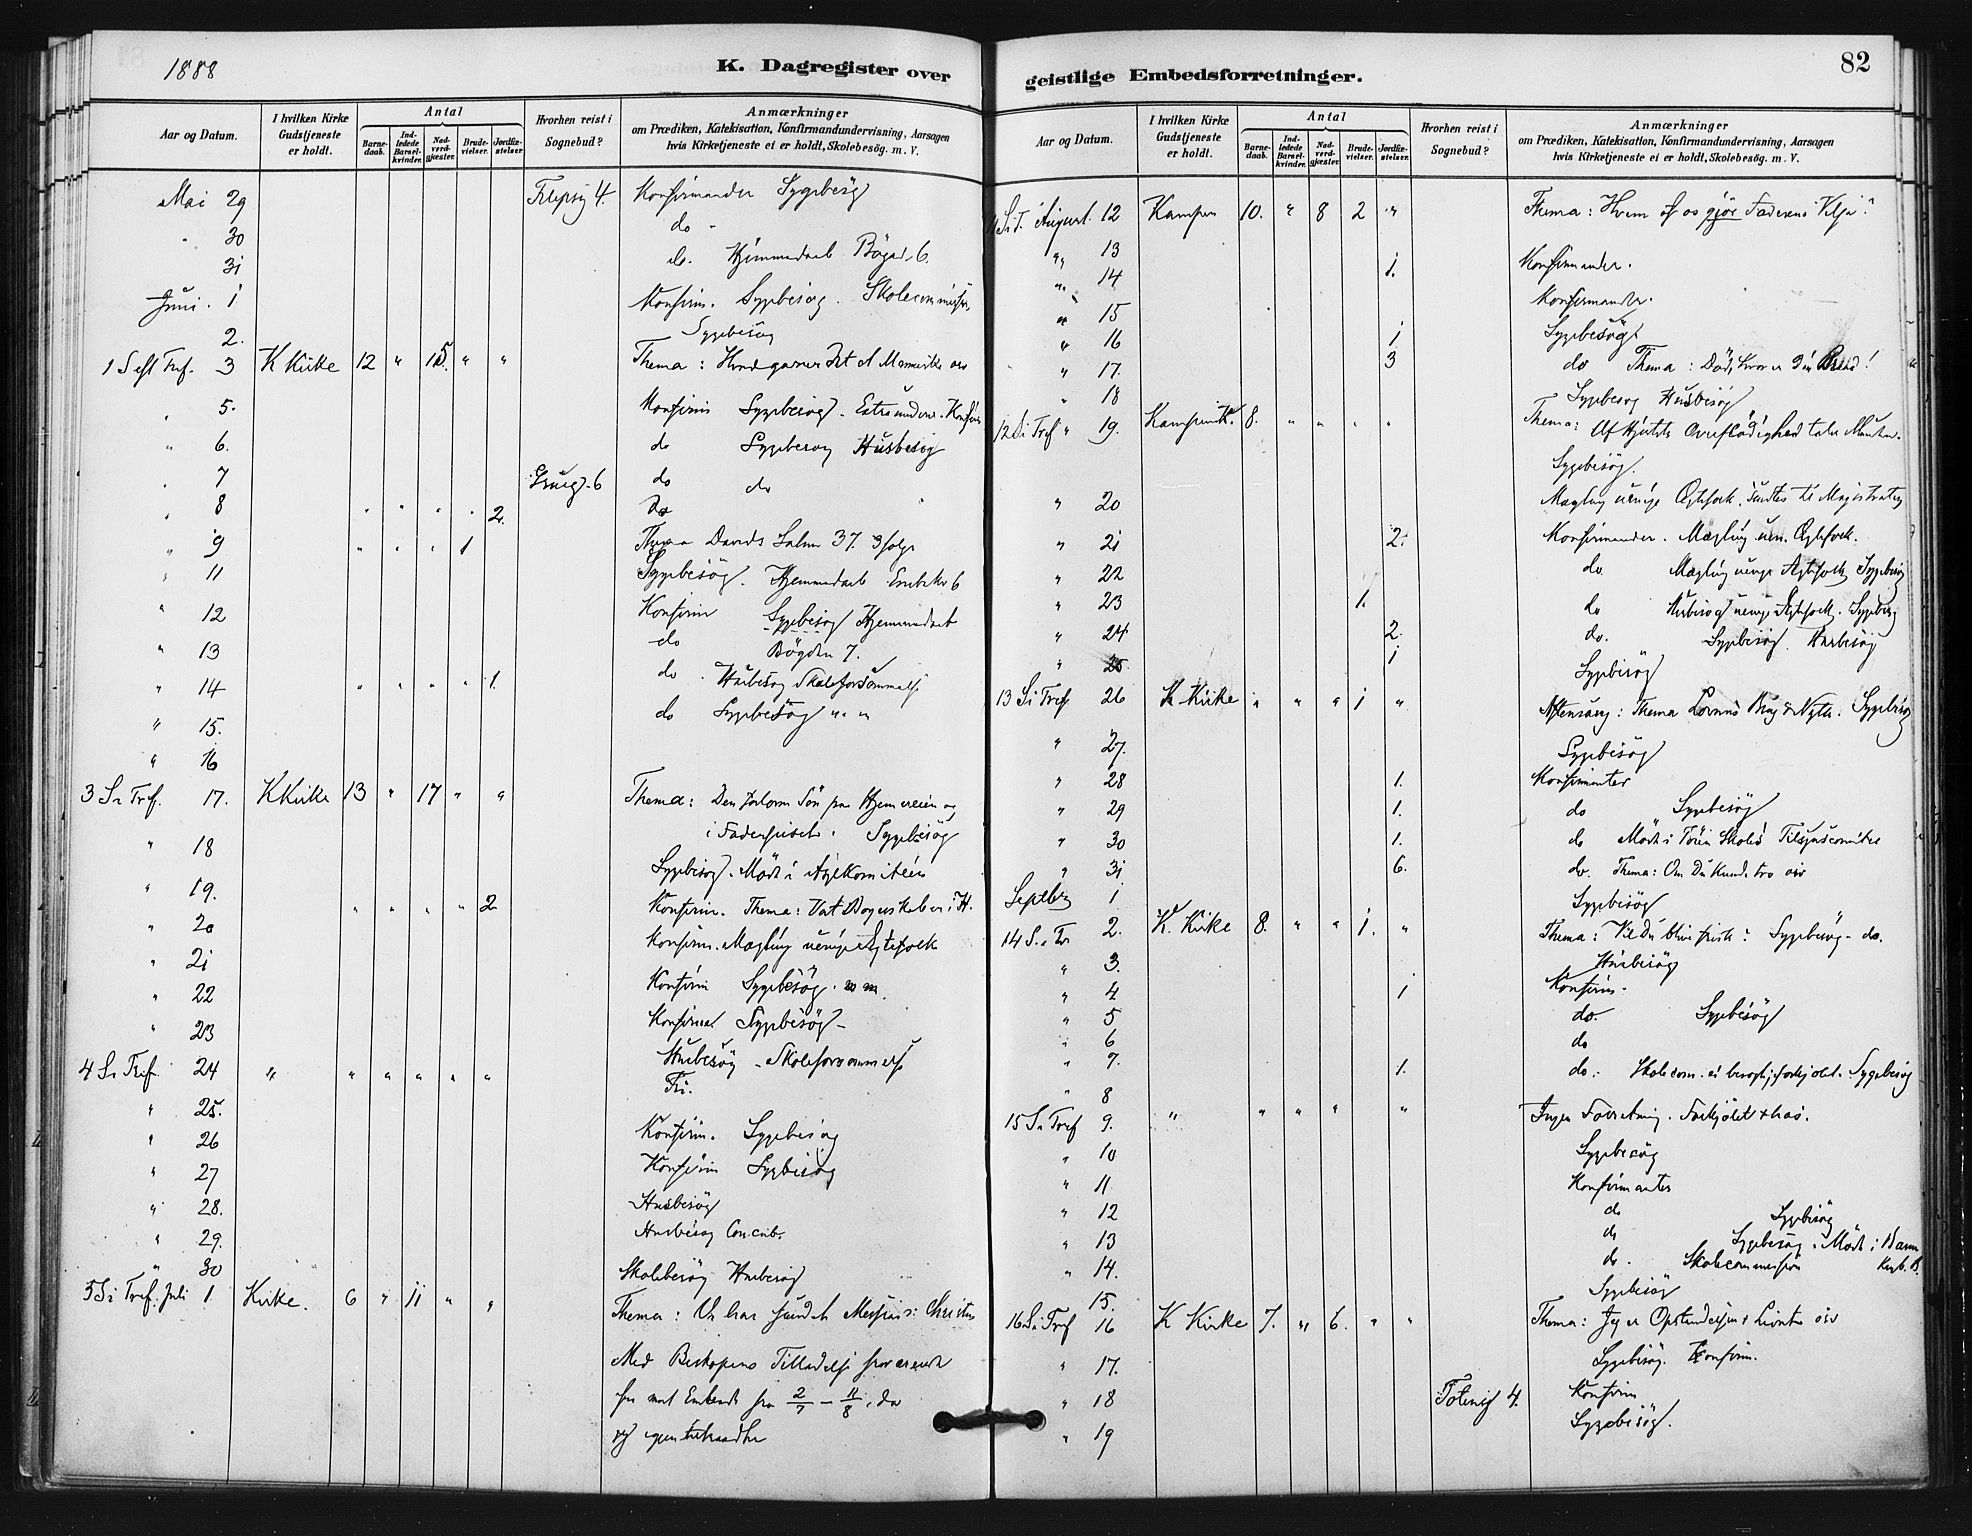 1888
K. Dagregister over
Aar og Datum.
I hvilken Kirke Gudstjeneste er holdt.
Antal
Barnedaab.
Indledede Barselkvinder.
Nadverdgjæster.
Brudevielser.
Jordfæstelser.
Hvorhen reist i Sognebud?
Anmærkninger
om Prædiken, Katekisation, Konfirmandundervisning, Aarsagen
hvis Kirketjeneste ei er holdt, Skolebesøg. m. V.
Mai 29 4. Konfirmander Sygebesøg
" 30 do "
31 do. Hjemmedaab Bögad. 6.
Juni. 1 Konfirm. Sygebesøg. Skolecommission
2. Sygebesøg
1 S eft Tref. 3 K Kirke 12 " 15. " " Thema: Hvad gavner det et Menneske osv
" 5. Konfirm Sygebesøg. Konfirm
" 6. do Sygebesøg Husbesøg
" 7 6 do do
" 8 " " " " 2. do
" 9 " " " 1 Thema Davids Salme 37. 3 følge
" 11 Sygebesøg. Hjemmedaab 6
" 12 Konfirm Sygebesøg Hjemmedaab
" 13 do Bögaden 7.
" 14 " " " " 1. do. Husbesøg
" 15. do Sygebesøg " "
" 16
3 S. Tref. 17. K Kirke 13 " 17 " " Thema: Den forlorne Søn paa Hjemveien og
i Faderhuset. Sygebesøg
" 18 Sygebesøg. Møde i Asylkomitéen
" 19. " " " " 2 Konfirm. Thema: Vort Borgerskab er i H.
" 20 Konfirm. Mægling uenige Ægtefolk
" 21 Konfirm Sygebesøg. m m.
" 22 Konfirma Sygebesøg
" 23 Husbesøg
4 S. Tref 24 " " " " " " Fri.
" 25.
" 26 Konfirm. Sygebesøg
" 27 Konfirm Sygebesøg
" 28. Husbesøg
" 29. Husbesøg Concub.
" 30 Skolebesøg Husbesøg
5 S. Tref. Juli 1. Kirke. 6 " 11 " " Thema: Vi har fundet Messias: Christus
Med Biskopens Tilladelse fraværende
fra mit Embede fra 2/7 – 11/8, da
geistlige Embedsforretninger.
82
Aar og Datum.
I hvilken Kirke Gudstjeneste er holdt.
Antal
Barnedaab.
Indledede Barselkvinder.
Nadverdgjæster.
Brudevielser.
Jordfæstelser.
Hvorhen reist i Sognebud?
Anmærkninger
om Prædiken, Katekisation, Konfirmandundervisning, Aarsagen
hvis Kirketjeneste ei er holdt, Skolebesøg. m. V.
11 S. T. August. 12 Kampen 10. " 8 2 " Thema: Hvem af os gjør Faderens Vilje?
" 13 Konfirmander.
" 14 1.
" 15 Konfirmander.
" 16 1 Sygebesøg
" 17. 3 do Thema: Död, hvor er din Brod!
" 18 Sygebesøg Husbesøg
12 S. Tref " 19. Kampens K. 8. " " " " Thema: Af Hjertets Overflödighed taler Munden.
Sygebesøg.
" 20 Mægling uenige Ægtefolk. til Magistraten
" 21 2. Konfirmander. Mægling uen. Ægtefolk.
" 22 do. Mægling uenige Ægtefolk Sygebesøg
" 23 1. do Husbesøg uenige Ægtefolk. Sygebesøg
" 24 2. do. Sygebesøg. Husbesøg
" 25 1 Sygebesøg
13 S. Tref 26 K Kirke " " " 1 " Aftensang: Thema Lovens Brug & Nytte. Sygebesøg
" 27. Sygebesøg
" 28 1. Konfirmanter
" 29 1. do Sygebesøg
" 30 1. do Møde i Töien Skoles Tilsynscomitee
" 31 6. do. Thema: Om Du kunde tro osv
Septbr 1 Sygebesøg
14 S. e Tr 2. K. Kirke 8. " " 1. " Thema: Vil Du blive frisk? Sygebesøg - do.
" 3. Husbesøg
" 4 1 Konfirm.
" 5 do. Sygebesøg
" 6 do
" 7. 1. do. Skolecom. Sygebesøg
" 8
15 S. Tref 9. " " " " " Ingen Forretning. Forkjölet & hæs.
" 10 Sygebesøg
" 11 Konfirmanter
" 12 do Sygebesøg
" 13 do Sygebesøg. Møde i
" 14. do. Skolecommission
15. Sygebesøg
16 S. Tref 16 K Kirke 7. " 6. " " Thema: Jeg er Opstandelsen & Livet osv
" 17. Sygebesøg. Konfirm.
" 18 4. Konfirm
" 19 Sygebesøg.